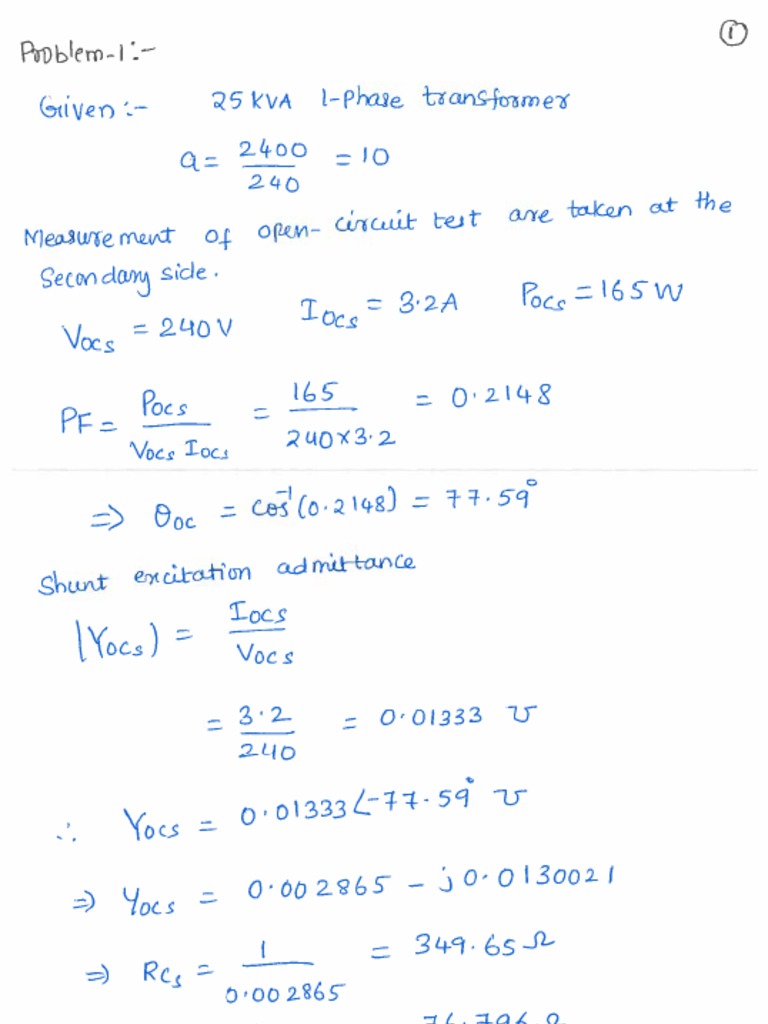 ①
Problem-1:-
Given:- 25 KVA 1-Phase transformer
a = 2400/240 = 10
Measurement of open-circuit test are taken at the
Secondary side.
Vocs = 240V Iocs = 3.2A Pocs = 165W
PF = Pocs/Vocs Iocs = 165/240×3.2 = 0.2148
⇒ θoc = cos⁻¹(0.2148) = 77.59°
Shunt excitation admittance
|Yocs) = Iocs/Vocs
= 3.2/240 = 0.01333 ʊ
∴ Yocs = 0.01333∠-77.59° ʊ
⇒ Yocs = 0.002865 - j0.0130021
⇒ Rcs = 1/0.002865 = 349.65Ω
76.796 Ω